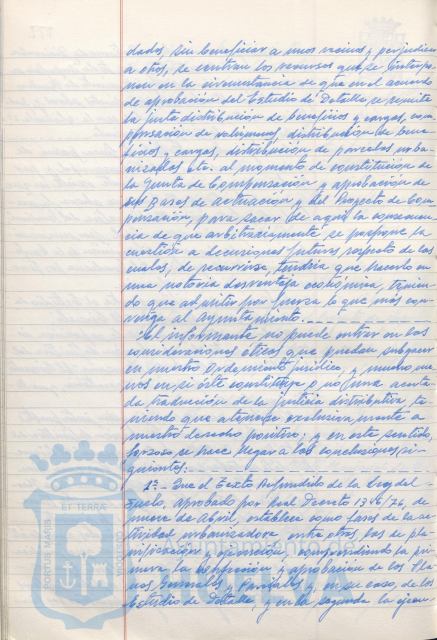 dados, sin beneficiar a unos vecinos y perjudicar
a otros, se centran los recursos que se interpo-
nen en la circunstancia de que en el acuerdo
de aprobación del Estudio de Detalle, se remite
la justa distribución de beneficios y cargas, com-
pensación de volúmenes, distribución de bene-
ficios y cargas, distribución de parcelas urba-
nizables etc. al momento de constitución de
la Junta de Compensación y aprobación de
Bases de actuación y del Proyecto de Com-
pensación, para sacar de aquí la consecuen-
cia de que arbitrariamente se pospone la
cuestión a decisiones futuras respecto de las
cuales, de recurrirse, tendría que hacerlo en
una notoria desventaja económica, tenien-
do que admitir por fuerza lo que más con-
venga al Ayuntamiento.
El informante no puede entrar en las
consideraciones éticas que puedan subyacer
en nuestro Ordenamiento jurídico, y mucho me-
nos en si éste constituye o no una acerta-
da traducción de la justicia distributiva te-
niendo que atenerse exclusivamente a
nuestro derecho positivo; y en este sentido,
forzoso se hace llegar a las conclusiones si-
guientes:
1º.- Que el Texto Refundido de la Ley del
Suelo, aprobado por Real Decreto 1346/76, de
nueve de Abril, establece como fases de la ac-
tividad urbanizadora, entre otras, las de pla-
nificación y ejecución, comprendiendo la pri-
mera la redacción y aprobación de los Pla-
nes Generales, Parciales y, en su caso, de los
Estudios de Detalle, y en la segunda la ejecu-
PORTUS MARIS
ET TERRÆ
CUSTODIA
HUELVA